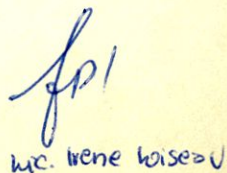 Lic. Irene Loiseau